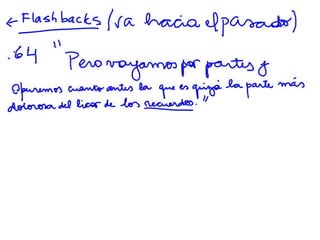 ← Flashbacks (va hacia el pasado)
.64 " Pero vayamos por partes y
apuremos cuanto antes la que es quizá la parte más
dolorosa del licor de los recuerdos."